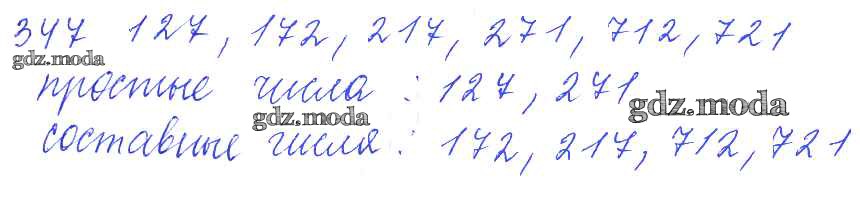 347 127, 172, 217, 271, 712, 721
gdz.moda
простые числа : 127, 271
gdz.moda
gdz.moda
составные числа : 172, 217, 712, 721